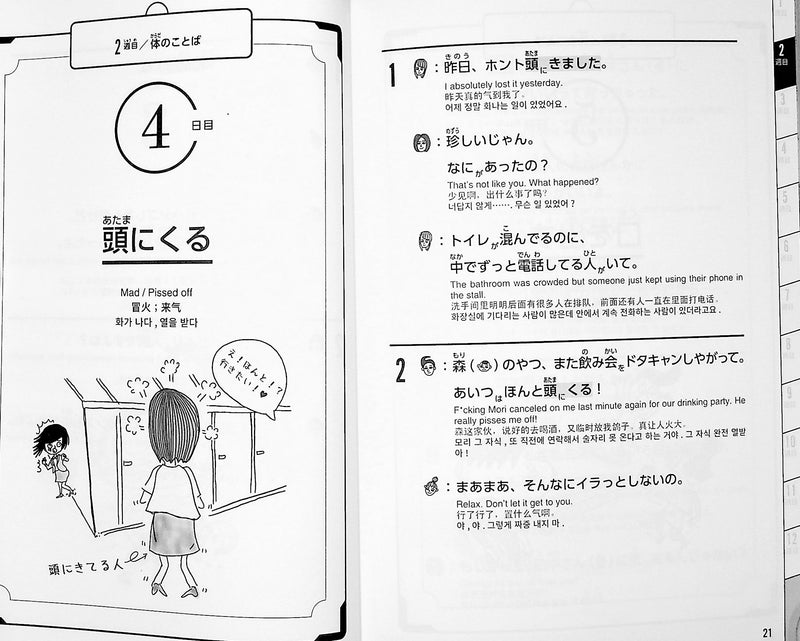 2週目/体のことば
4日目
頭にくる
Mad / Pissed off
冒火；来气
화가 나다 , 열을 받다
え！ほんと！？
行きたい！♥
頭にきてる人
1 ：昨日、ホント頭にきました。
I absolutely lost it yesterday.
昨天真的气到我了。
어제 정말 화나는 일이 있었어요 .
：珍しいじゃん。
なにがあったの？
That's not like you. What happened?
少见啊，出什么事了吗？
너답지 않게……. 무슨 일 있었어 ?
：トイレが混んでるのに、
中でずっと電話してる人がいて。
The bathroom was crowded but someone just kept using their phone in
the stall.
洗手间里明明后面有很多人在排队，前面还有人一直在里面打电话。
화장실에 기다리는 사람이 많은데 안에서 계속 전화하는 사람이 있더라고요 .
2 ：森（ ）のやつ、また飲み会をドタキャンしやがって。
あいつはほんと頭にくる！
F*cking Mori canceled on me last minute again for our drinking party. He
really pisses me off!
森这家伙，说好的去喝酒，又临时放我鸽子。真让人火大。
모리 그 자식 , 또 직전에 연락해서 술자리 못 온다고 하는 거야 . 그 자식 완전 열받
아 !
：まあまあ、そんなにイラっとしないの。
Relax. Don't let it get to you.
行了行了，置什么气啊。
야 , 야 . 그렇게 짜증 내지 마 .
21
2
週目
3
4
5
6
7
8
9
10
11
12